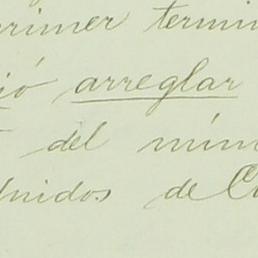 primer termin
ió arreglar
del mún
Unidos de Co